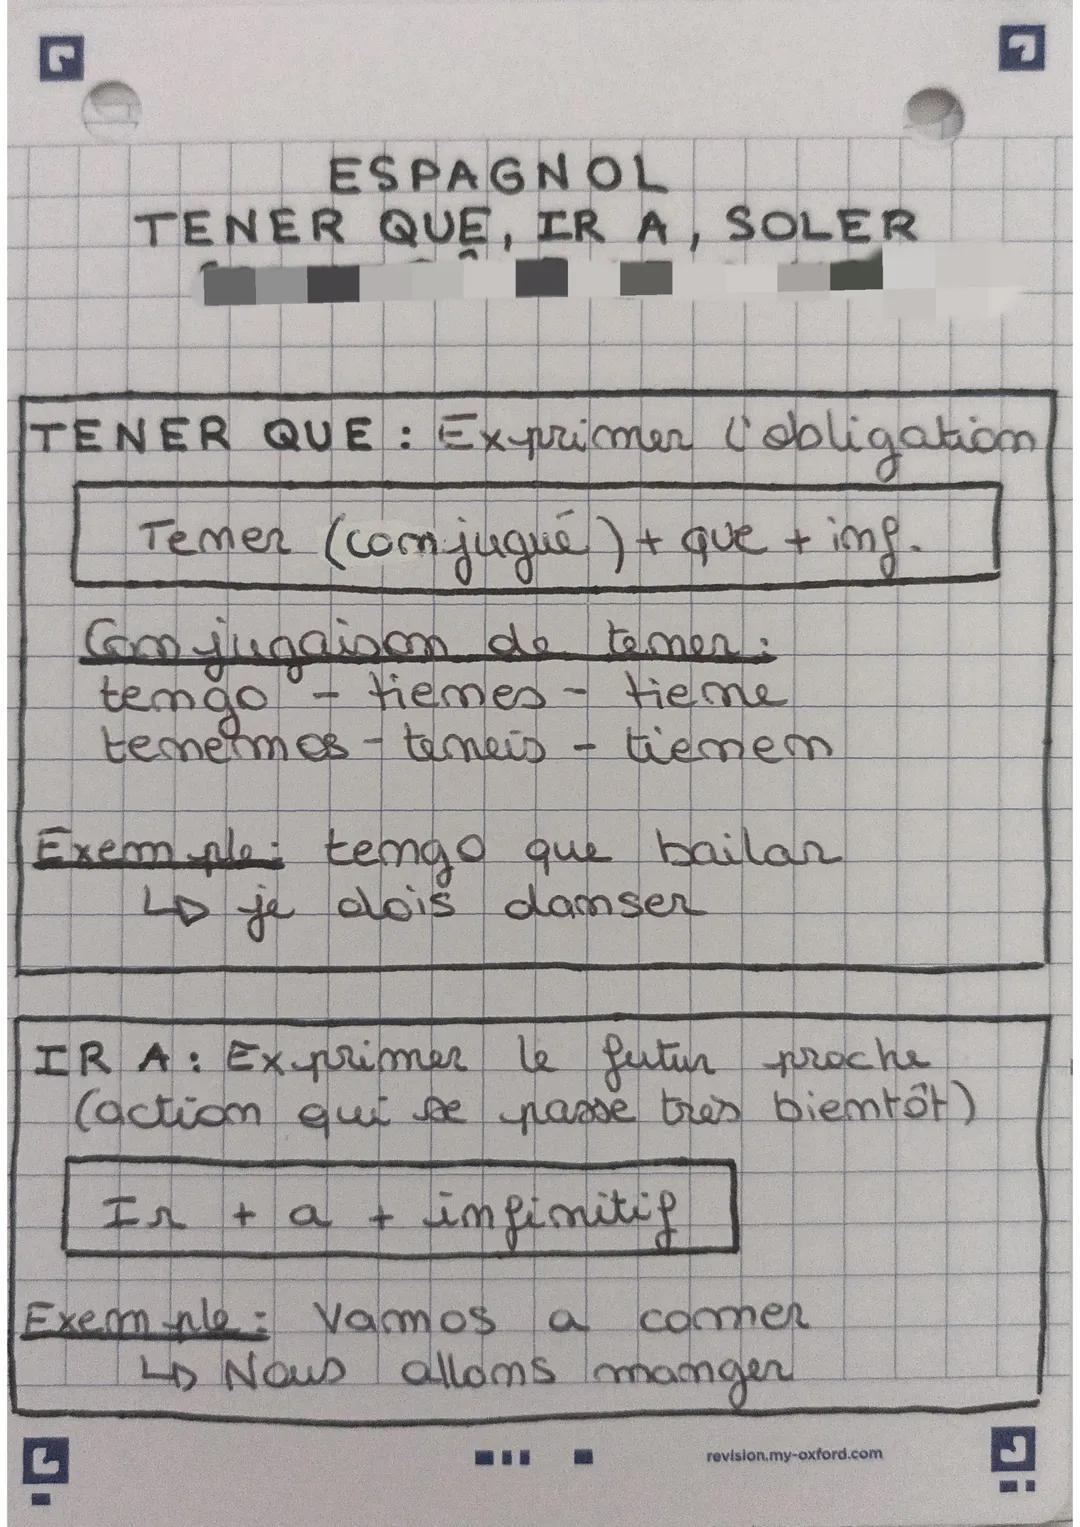 ESPAGNOL
TENER QUE, IR A, SOLER
TENER QUE : Exprimer l'obligation
Tener (conjugué) + que + inf.
Conjugaison de tener :
tengo - tienes - tiene
tenemos - teneis - tienen
Exemple : tengo que bailar
↳ je dois danser
IR A : Exprimer le futur proche
(action qui se passe très bientôt)
Ir + a + infinitif
Exemple : Vamos a comer
↳ Nous allons manger
revision.my-oxford.com